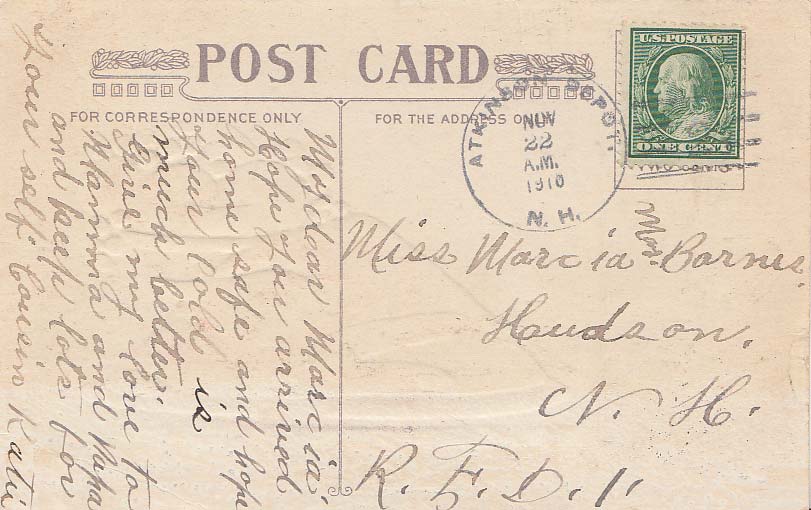 POST CARD
FOR CORRESPONDENCE ONLY
FOR THE ADDRESS ON
U.S. POSTAGE
ONE CENT
ATKINSON DEPOT
NOV
22
A.M.
1910
N. H.
My dear Marcia,
Hope you arrived
home safe and hope
your cold is
much better.
Give my love to
Mamma and Papa
and keep lots for
your self. Cousin Katie
Miss Marcia Mae Barnes,
Haudson.
N. H.
R. F. D. 1.